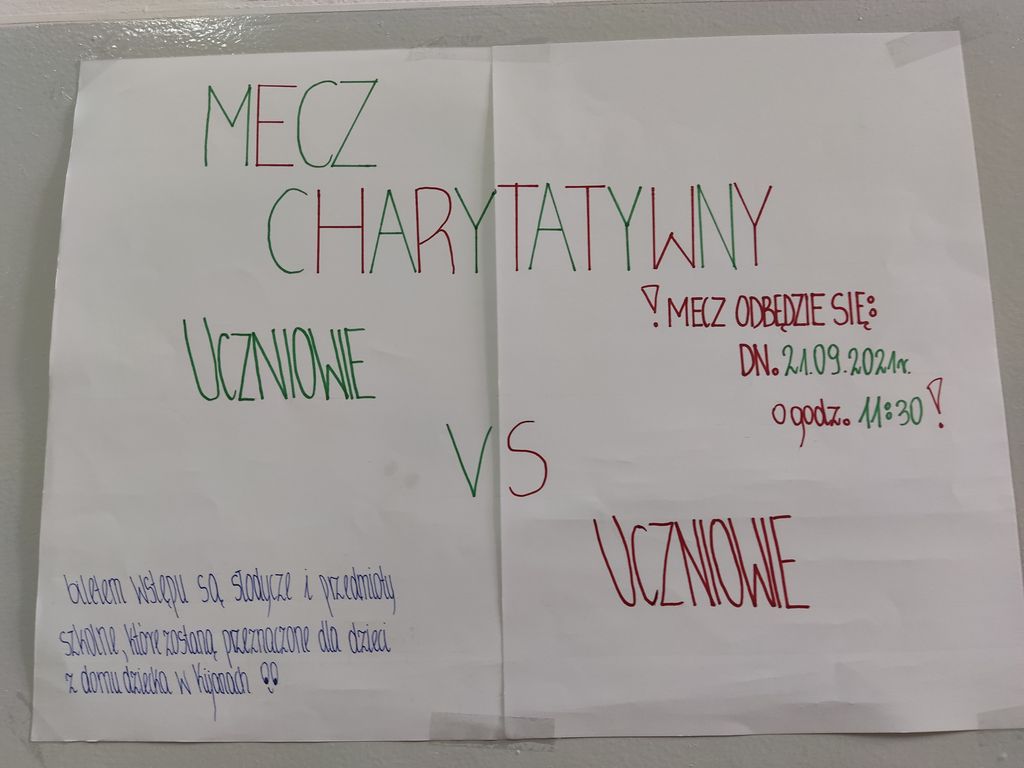 MECZ
CHARYTATYWNY
UCZNIOWIE
VS
UCZNIOWIE
! MECZ ODBĘDZIE SIĘ:
DN. 21.09.2021r.
o godz. 11:30 !
biletem wstępu są słodycze i przedmioty
szkolne, które zostaną przeznaczone dla dzieci
z domu dziecka w Kijanach !!